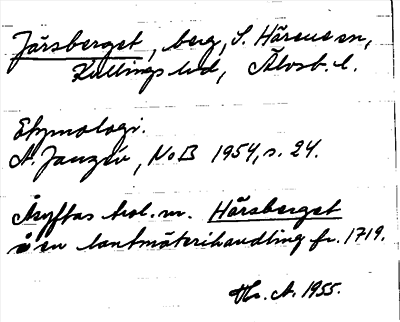 Järsberget, berg, S. Härene sn,
Kullings hd, Älvsb. l.
Etymologi.
A. Janzén, NoB 1954, s. 24.
Åsyftas trol. m. Härsberget
i en lantmäterihandling fr. 1719.
A. 1955.